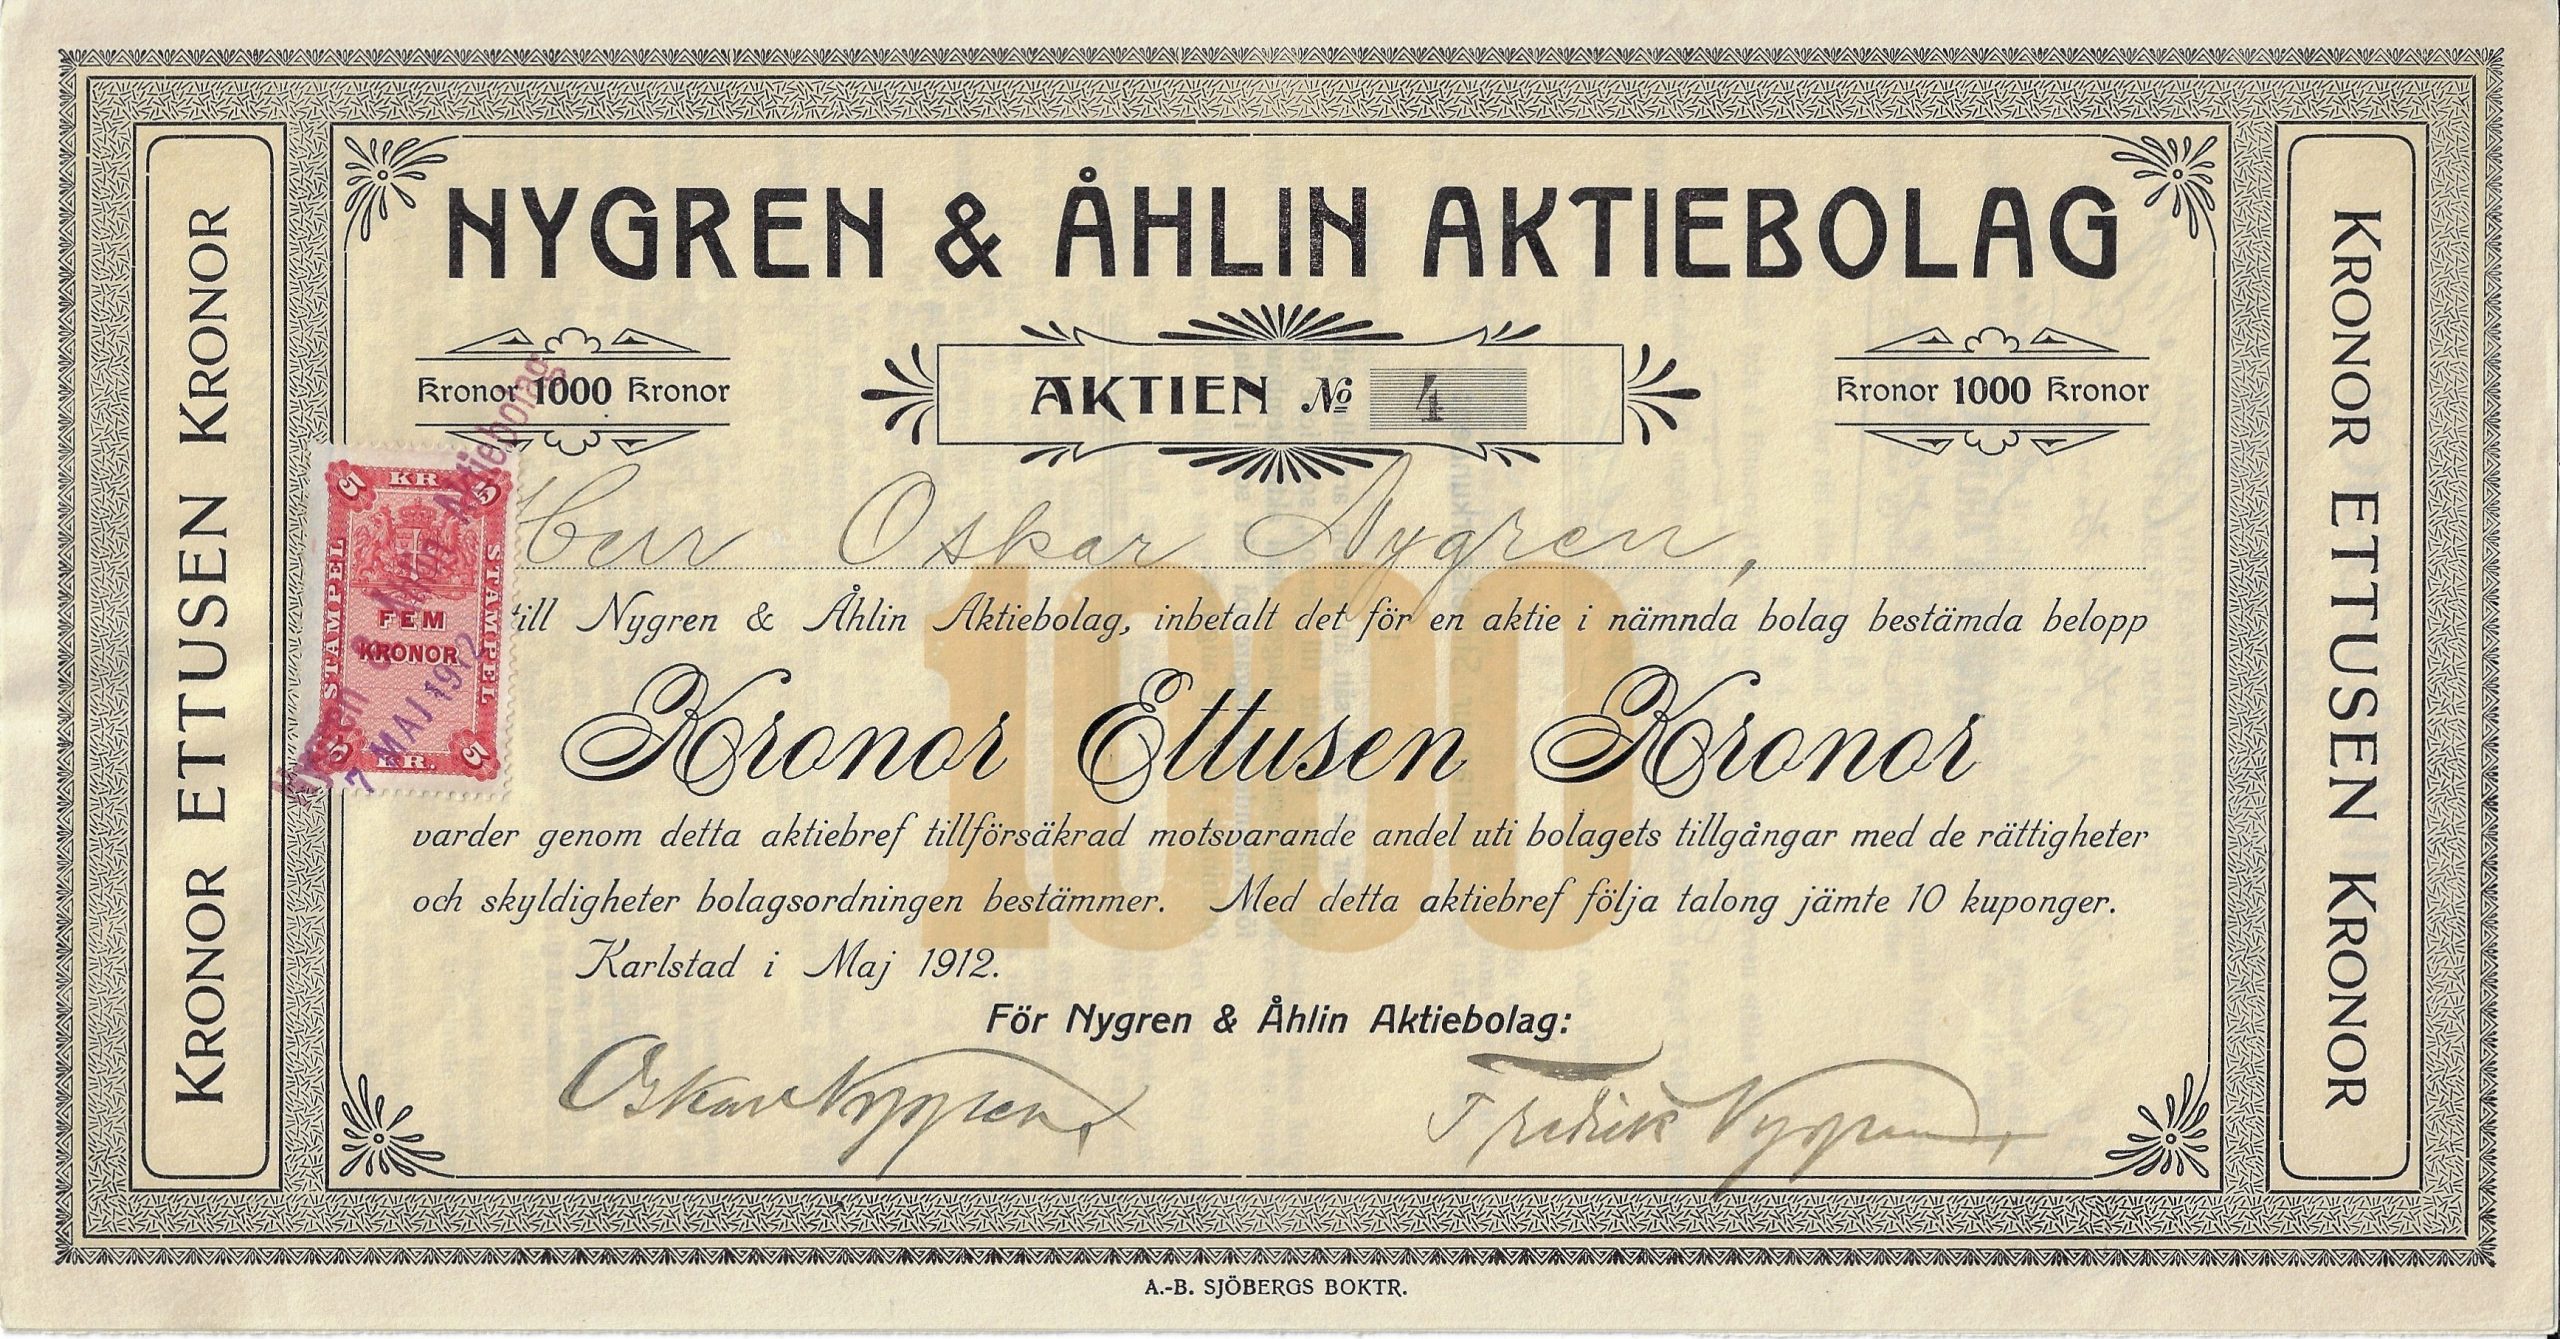 NYGREN & ÅHLIN AKTIEBOLAG
Kronor 1000 Kronor
AKTIEN No 4
Kronor 1000 Kronor
Herr Oskar Nygren,
till Nygren & Åhlin Aktiebolag, inbetalt det för en aktie i nämnda bolag bestämda belopp
Kronor Ettusen Kronor
varder genom detta aktiebref tillförsäkrad motsvarande andel uti bolagets tillgångar med de rättigheter
och skyldigheter bolagsordningen bestämmer. Med detta aktiebref följa talong jämte 10 kuponger.
Karlstad i Maj 1912.
För Nygren & Åhlin Aktiebolag:
Oskar Nygren
Fredrik Nygren
KRONOR ETTUSEN KRONOR
KRONOR ETTUSEN KRONOR
5 KR 5
STAMPEL
STAMPEL
FEM
KRONOR
5 KR. 5
Nygren & Åhlin Aktiebolag
7 MAJ 1912
1000
A.-B. SJÖBERGS BOKTR.